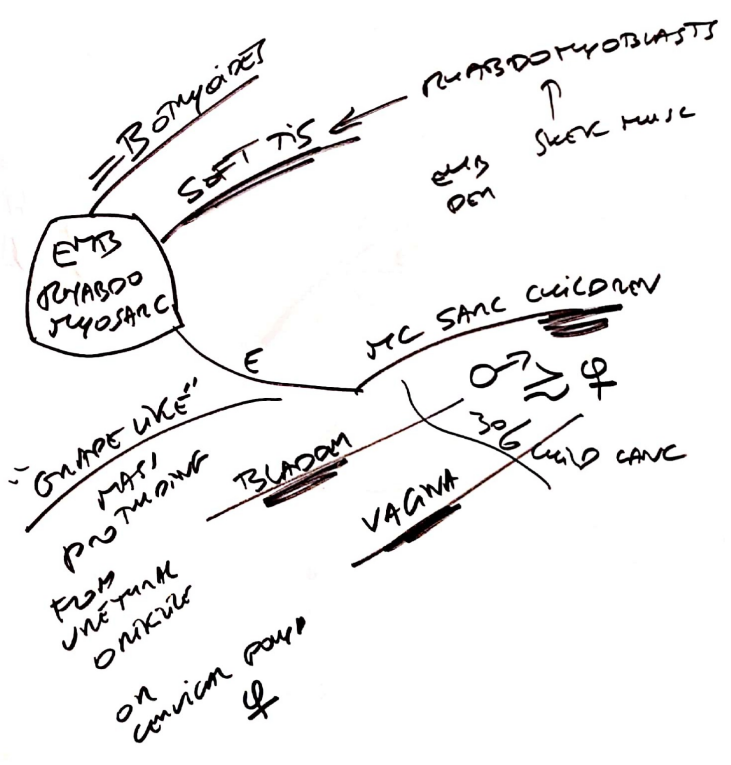 = BOTRYOIDES
SOFT TIS
RHABDOMYOBLASTS
↑
SKEL MUSC
EMB
DER
EMB
RHABDO
MYOSARC
E
MC SARC CHILDREN
♂ ≥ ♀
3%
CHILD CANC
BLADDER
VAGINA
"GRAPE LIKE"
MASS
PROTRUDING
FROM
URETHRAL
ORIFICE
OR
CERVICAL POLYP
♀